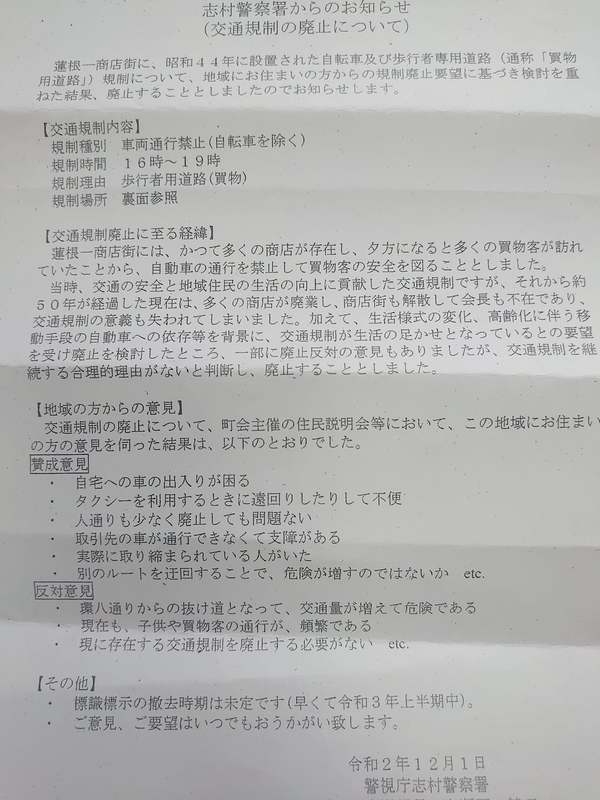 志村警察署からのお知らせ
(交通規制の廃止について)
蓮根一商店街に、昭和44年に設置された自転車及び歩行者専用道路（通称「買物
用道路」）規制について、地域にお住まいの方からの規制廃止要望に基づき検討を重
ねた結果、廃止することとしましたのでお知らせします。
【交通規制内容】
規制種別　車両通行禁止(自転車を除く)
規制時間　16時～19時
規制理由　歩行者用道路(買物)
規制場所　裏面参照
【交通規制廃止に至る経緯】
蓮根一商店街には、かつて多くの商店が存在し、夕方になると多くの買物客が訪れ
ていたことから、自動車の通行を禁止して買物客の安全を図ることとしました。
当時、交通の安全と地域住民の生活の向上に貢献した交通規制ですが、それから約
50年が経過した現在は、多くの商店が廃業し、商店街も解散して会長も不在であり、
交通規制の意義も失われてしまいました。加えて、生活様式の変化、高齢化に伴う移
動手段の自動車への依存等を背景に、交通規制が生活の足かせとなっているとの要望
を受け廃止を検討したところ、一部に廃止反対の意見もありましたが、交通規制を継
続する合理的理由がないと判断し、廃止することとしました。
【地域の方からの意見】
交通規制の廃止について、町会主催の住民説明会等において、この地域にお住まい
の方の意見を伺った結果は、以下のとおりでした。
賛成意見
・　自宅への車の出入りが困る
・　タクシーを利用するときに遠回りしたりして不便
・　人通りも少なく廃止しても問題ない
・　取引先の車が通行できなくて支障がある
・　実際に取り締まられている人がいた
・　別のルートを迂回することで、危険が増すのではないか　etc.
反対意見
・　環八通りからの抜け道となって、交通量が増えて危険である
・　現在も、子供や買物客の通行が、頻繁である
・　現に存在する交通規制を廃止する必要がない　etc.
【その他】
・　標識標示の撤去時期は未定です(早くて令和3年上半期中)。
・　ご意見、ご要望はいつでもおうかがい致します。
令和2年12月1日
警視庁志村警察署